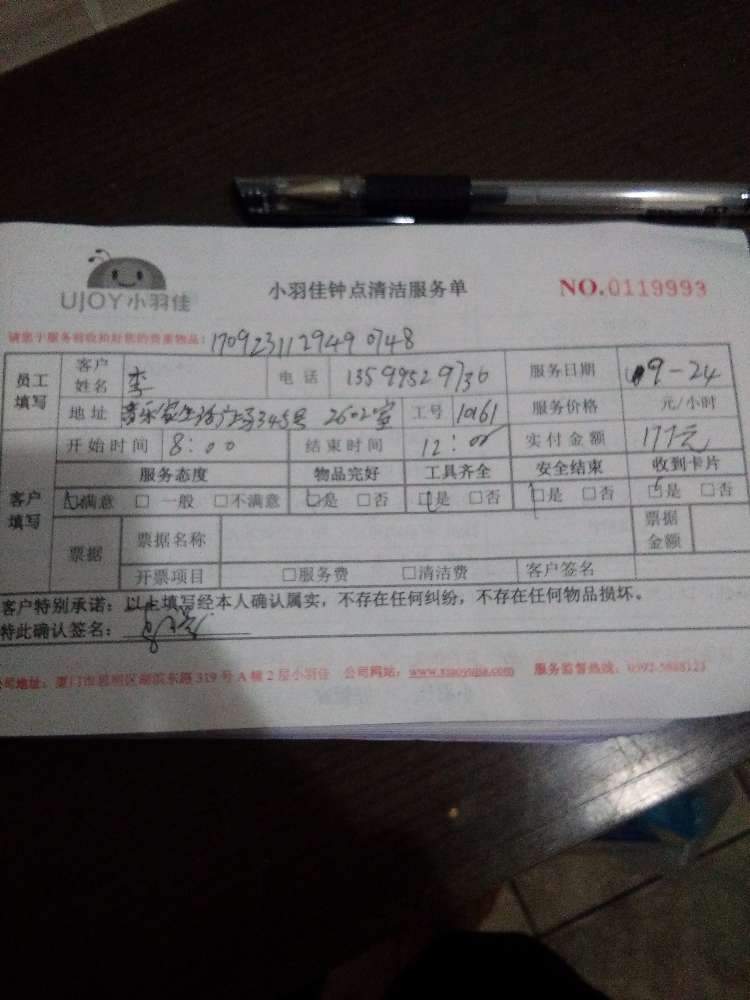 UJOY小羽佳 小羽佳钟点清洁服务单 NO.0119993
请您于服务前收拾好您的贵重物品! 1709231129490748
员工填写 客户姓名 李 电话 13599529736 服务日期 09-24
地址 345号 2602室 工号 10161 服务价格 元/小时
开始时间 8:00 结束时间 12:00 实付金额 177元
客户填写 服务态度 物品完好 工具齐全 安全结束 收到卡片
□满意 □一般 □不满意 □是 □否 □是 □否 □是 □否 □是 □否
票据 票据名称 票据金额
开票项目 □服务费 □清洁费 客户签名
客户特别承诺：以上填写经本人确认属实，不存在任何纠纷，不存在任何物品损坏。
特此确认签名：
公司地址：厦门市思明区湖滨东路319号A幢2层小羽佳 公司网站：www.xiaoyujia.com 服务监督热线：0592-5888123